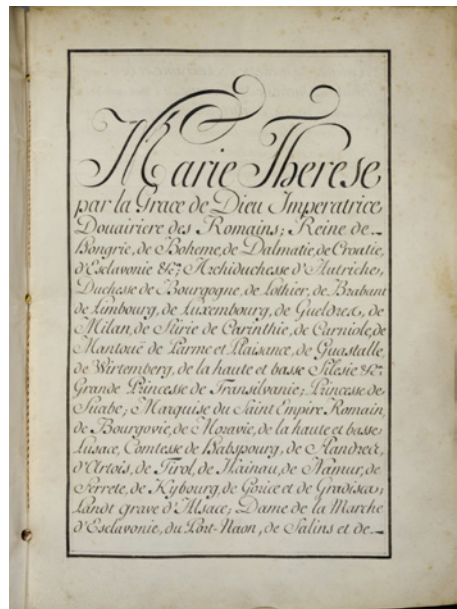 Marie Therese
par la Grace de Dieu Imperatrice
Douairiere des Romains; Reine de
Hongrie, de Boheme, de Dalmatie, de Croatie,
d'Esclavonie &c; Archiduchesse d'Autriche,
Duchesse de Bourgogne, de Lothier, de Brabant
de Limbourg, de Luxembourg, de Gueldres, de
Milan, de Stirie de Carinthie, de Carniole, de
Mantouë de Parme et Plaisance, de Guastalle,
de Wirtemberg, de la haute et basse Silesie &c
Grande Princesse de Transilvanie; Princesse de
Suabe; Marquise du Saint Empire Romain,
de Bourgovie, de Moravie, de la haute et basse
Lusace, Comtesse de Habspourg, de Flandres,
d'Artois, de Tirol, de Hainau, de Namur, de
Ferrete, de Kybourg, de Gorice et de Gradisca;
Landtgrave d'Alsace; Dame de la Marche
d'Esclavonie, du Port-Naon, de Salins et de